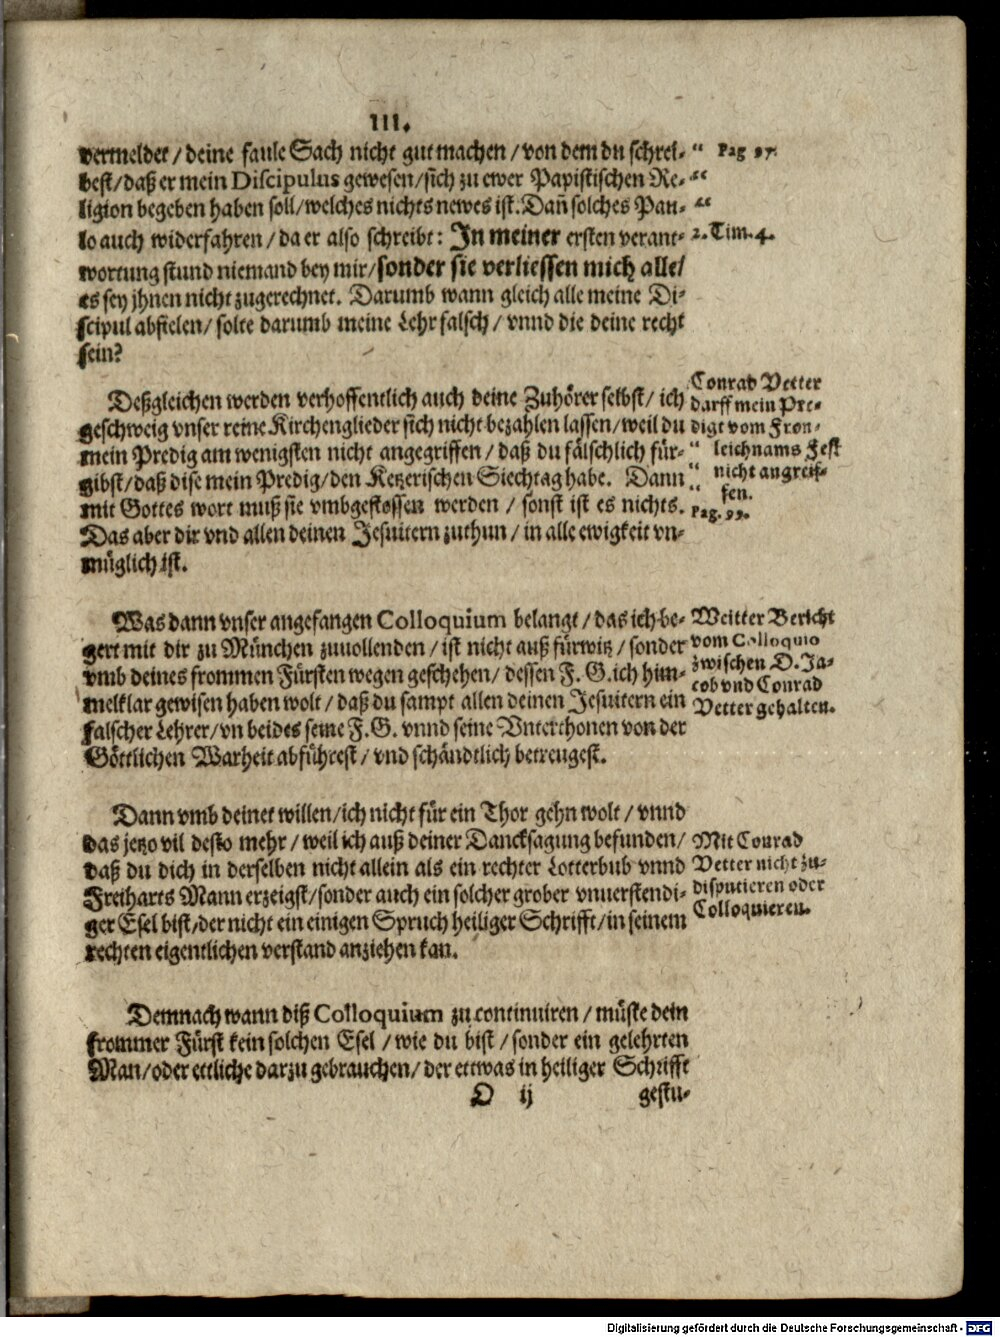 III.
vermeldet / deine faule Sach nicht gut machen / von dem du schrei- “ Pag 97.
best / daß er mein Discipulus gewesen / sich zu ewer Papistischen Re- “
ligion begeben haben soll / welches nichts newes ist. Dañ solches Pau- “
lo auch widerfahren / da er also schreibt: In meiner ersten verant- 2. Tim. 4.
wortung stund niemand bey mir / sonder sie verliessen mich alle /
es sey jhnen nicht zugerechnet. Darumb wann gleich alle meine Di-
scipul abfielen / solte darumb meine Lehr falsch / vnnd die deine recht
sein?
Deßgleichen werden verhoffentlich auch deine Zuhörer selbst / ich
geschweig vnser reine Kirchenglieder sich nicht bezahlen lassen / weil du
mein Predig am wenigsten nicht angegriffen / daß du fälschlich für- “
gibst / daß dise mein Predig / den Ketzerischen Siechtag habe. Dann “
mit Gottes wort muß sie vmbgestossen werden / sonst ist es nichts.
Das aber dir vnd allen deinen Jesuitern zuthun / in alle ewigkeit vn-
müglich ist.
Conrad Vetter
darff mein Pre-
digt vom Fron-
leichnams Fest
nicht angreif-
fen.
Pag. 99.
Was dann vnser angefangen Colloquium belangt / das ich be-
gert mit dir zu München zuuollenden / ist nicht auß fürwitz / sonder
vmb deines frommen Fürsten wegen geschehen / dessen F. G. ich him-
melklar gewisen haben wolt / daß du sampt allen deinen Jesuitern ein
falscher Lehrer / vn beides seine F. G. vnnd seine Vnterthonen von der
Göttlichen Warheit abführest / vnd schändtlich betreugest.
Weitter Bericht
vom Colloquio
zwischen D. Ja-
cob vnd Conrad
Vetter gehalten.
Dann vmb deinet willen / ich nicht für ein Thor gehn wolt / vnnd
das jetzo vil desto mehr / weil ich auß deiner Dancksagung befunden /
daß du dich in derselben nicht allein als ein rechter Lotterbub vnnd
Freiharts Mann erzeigst / sonder auch ein solcher grober vnuerstendi-
ger Esel bist / der nicht ein einigen Spruch heiliger Schrifft / in seinem
rechten eigentlichen verstand anziehen kan.
Mit Conrad
Vetter nicht zu-
disputieren oder
Colloquieren.
Demnach wann diß Colloquium zu continuiren / müste dein
frommer Fürst kein solchen Esel / wie du bist / sonder ein gelehrten
Man / oder ettliche darzu gebrauchen / der ettwas in heiliger Schrifft
D ij gestu-
Digitalisierung gefördert durch die Deutsche Forschungsgemeinschaft - DFG